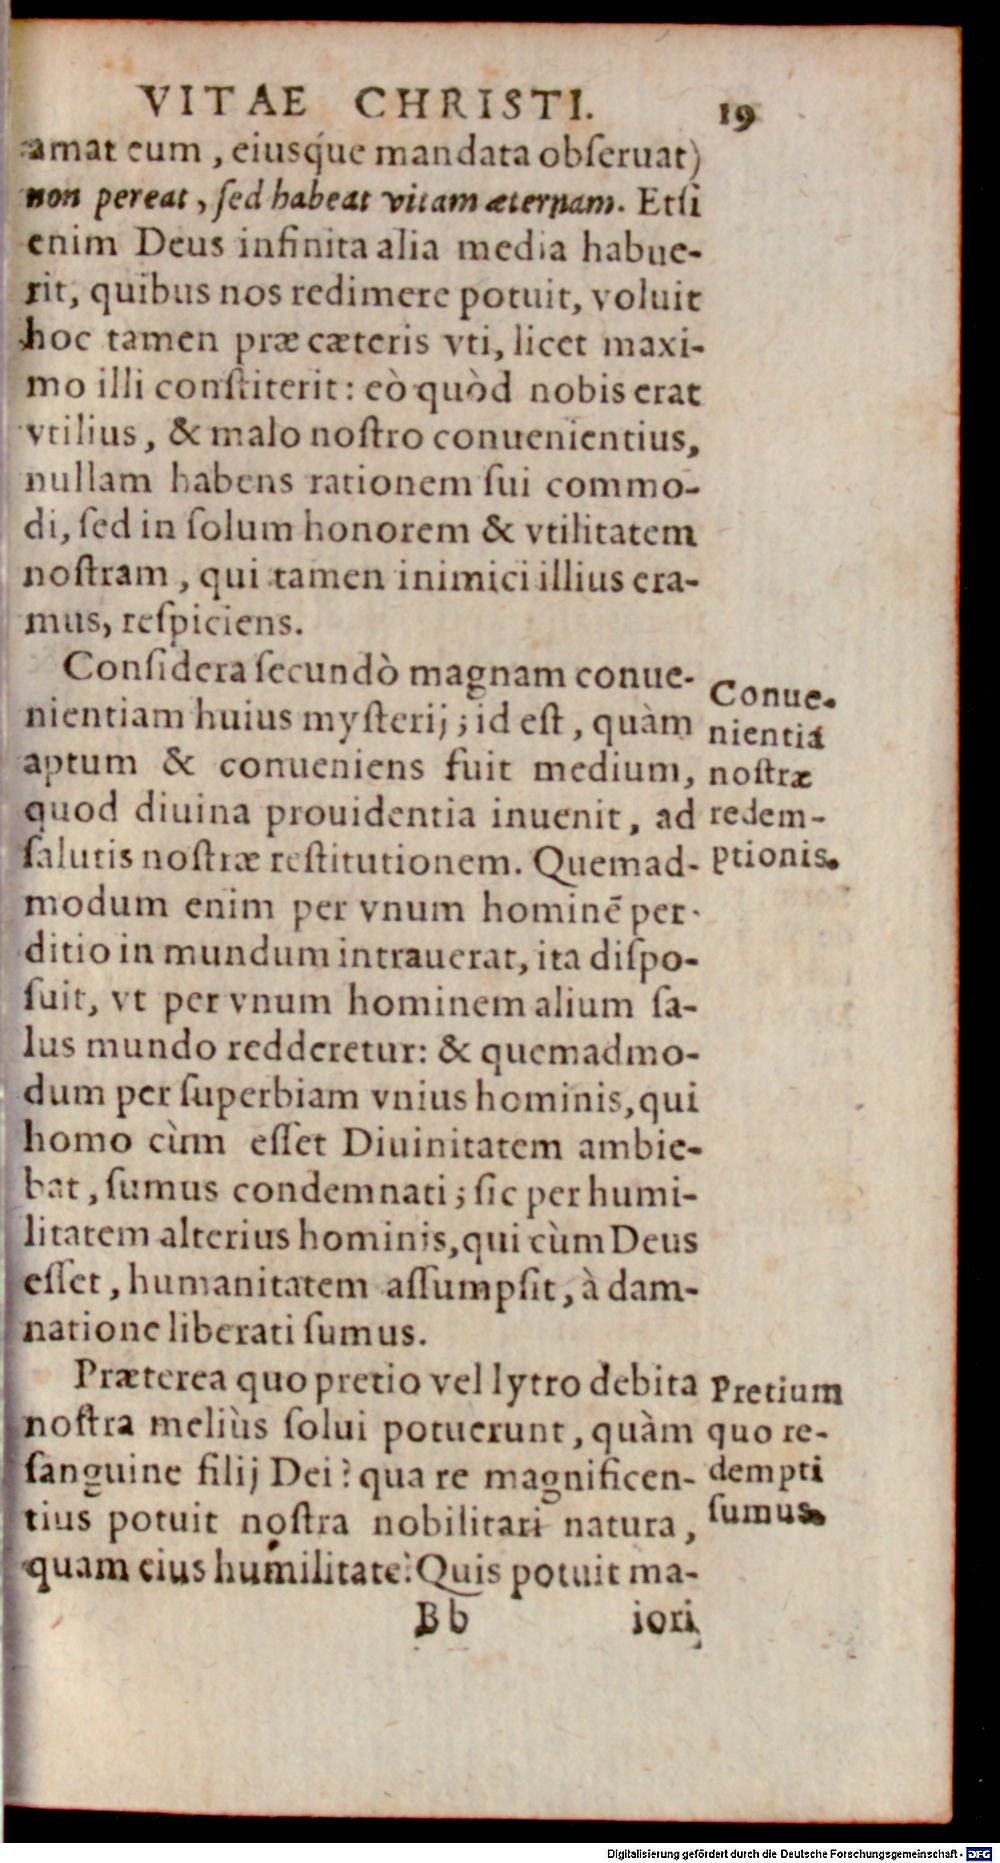 VITAE CHRISTI. 19
amat eum, eiusq́ue mandata obſeruat)
non pereat, ſed habeat vitam æternam. Etſi
enim Deus infinita alia media habue-
rit, quibus nos redimere potuit, voluit
hoc tamen præ cæteris vti, licet maxi-
mo illi conſtiterit: eò quòd nobis erat
vtilius, & malo noſtro conuenientius,
nullam habens rationem ſui commo-
di, ſed in ſolum honorem & vtilitatem
noſtram, qui tamen inimici illius era-
mus, reſpiciens.
Conſidera ſecundò magnam conue-
nientiam huius myſterij; id eſt, quàm
aptum & conueniens fuit medium,
quod diuina prouidentia inuenit, ad
ſalutis noſtræ reſtitutionem. Quemad-
modum enim per vnum hominē per-
ditio in mundum intrauerat, ita diſpo-
ſuit, vt per vnum hominem alium ſa-
lus mundo redderetur: & quemadmo-
dum per ſuperbiam vnius hominis, qui
homo cùm eſſet Diuinitatem ambie-
bat, ſumus condemnati; ſic per humi-
litatem alterius hominis, qui cùm Deus
eſſet, humanitatem aſſumpſit, à dam-
natione liberati ſumus.
Conue-
nientia
noſtræ
redem-
ptionis.
Præterea quo pretio vel lytro debita
noſtra meliùs ſolui potuerunt, quàm
ſanguine filij Dei? qua re magnificen-
tius potuit noſtra nobilitari natura,
quam eius humilitate? Quis potuit ma-
Pretium
quo re-
dempti
ſumus.
Bb iori
Digitalisierung gefördert durch die Deutsche Forschungsgemeinschaft - DFG